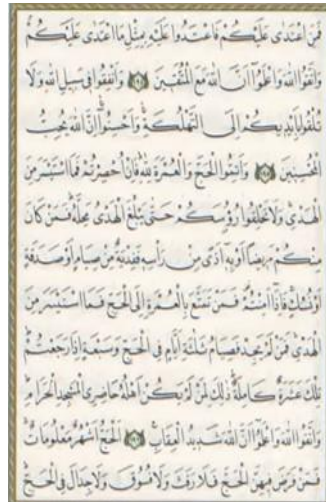 فَمَنِ اعْتَدٰى عَلَيْكُمْ فَاعْتَدُوا عَلَيْهِ بِمِثْلِ مَا اعْتَدٰى عَلَيْكُمْ
وَاتَّقُوا اللّٰهَ وَاعْلَمُٓوا اَنَّ اللّٰهَ مَعَ الْمُتَّقٖينَ ﴿١٩٤﴾ وَاَنْفِقُوا فٖي سَبٖيلِ اللّٰهِ وَلَا
تُلْقُوا بِاَيْدٖيكُمْ اِلَى التَّهْلُكَةِ وَاَحْسِنُوا اِنَّ اللّٰهَ يُحِبُّ
الْمُحْسِنٖينَ ﴿١٩٥﴾ وَاَتِمُّوا الْحَجَّ وَالْعُمْرَةَ لِلّٰهِ فَاِنْ اُحْصِرْتُمْ فَمَا اسْتَيْسَرَ مِنَ
الْهَدْيِ وَلَا تَحْلِقُوا رُؤُ۫سَكُمْ حَتّٰى يَبْلُغَ الْهَدْيُ مَحِلَّهُ فَمَنْ كَانَ
مِنْكُمْ مَرٖيضًا اَوْ بِهٖٓ اَذًى مِنْ رَاْسِهٖ فَفِدْيَةٌ مِنْ صِيَامٍ اَوْ صَدَقَةٍ
اَوْ نُسُكٍ فَاِذَٓا اَمِنْتُمْ فَمَنْ تَمَتَّعَ بِالْعُمْرَةِ اِلَى الْحَجِّ فَمَا اسْتَيْسَرَ مِنَ
الْهَدْيِ فَمَنْ لَمْ يَجِدْ فَصِيَامُ ثَلٰثَةِ اَيَّامٍ فِي الْحَجِّ وَسَبْعَةٍ اِذَا رَجَعْتُمْ
تِلْكَ عَشَرَةٌ كَامِلَةٌ ذٰلِكَ لِمَنْ لَمْ يَكُنْ اَهْلُهُ حَاضِرِي الْمَسْجِدِ الْحَرَامِ
وَاتَّقُوا اللّٰهَ وَاعْلَمُٓوا اَنَّ اللّٰهَ شَدٖيدُ الْعِقَابِ ﴿١٩٦﴾ اَلْحَجُّ اَشْهُرٌ مَعْلُومَاتٌ
فَمَنْ فَرَضَ فٖيهِنَّ الْحَجَّ فَلَا رَفَثَ وَلَا فُسُوقَ وَلَا جِدَالَ فِي الْحَجِّ